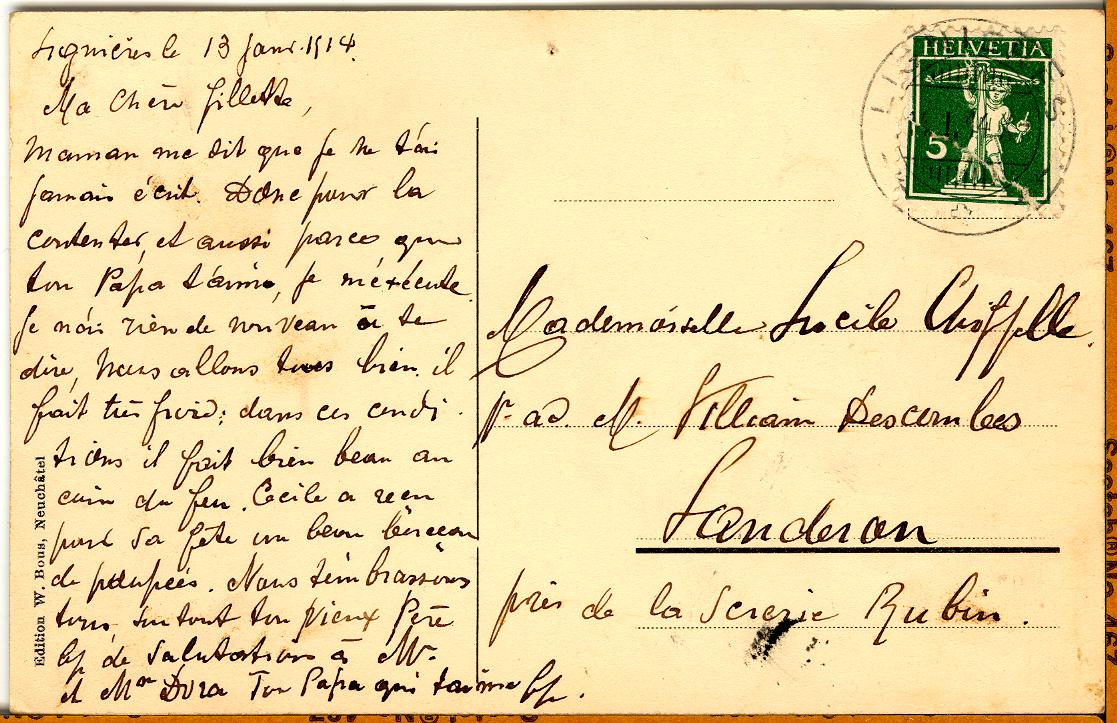 Lignières le 13 Janv. 1914.
Ma Chère fillette,
Maman me dit que je ne t'ai
jamais écrit. Donc pour la
contenter, et aussi parce que
ton Papa t'aime, je m'éxécute.
Je n'ai rien de nouveau à te
dire, nous allons tous bien. il
fait très froid; dans ces condi-
tions il fait bien beau au
coin du feu. Cécile a reçu
pour sa fête un beau berceau
de poupées. Nous t'embrassons
tous, surtout ton vieux Père
bp de salutations à Mr.
et Mme Dora Ton Papa qui t'aime bp.
Edition W. Bous, Neuchâtel
HELVETIA
5
LIGNIÈRES
Mademoiselle Lucile Chiffelle.
p. ad. M. William Descombes
Landeron
près de la Scierie Rubin.